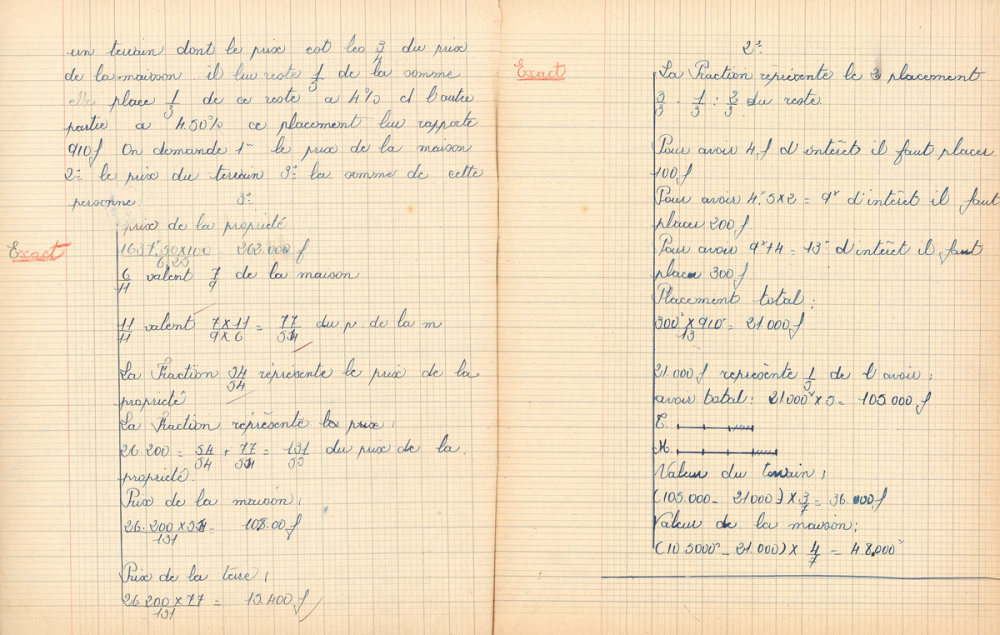 un terrain dont le prix est les 3/4 du prix
de la maison il lui reste 1/5 de la somme
Elle place 1/3 de ce reste a 4% et l'autre
partie a 4.50% ce placement lui rapporte
910f On demande 1º le prix de la maison
2º le prix du terrain 3º la somme de cette
personne.
3º
prix de la propriété
Exact
1637,50x100 = 262.000 f
6,25
6/11 valent 7/9 de la maison
11/11 valent 7 x 11 / 9 x 6 = 77/54 du p de la m
La Fraction 54/54 représente le prix de la
propriété
La Fraction représente le prix,
26.200 = 54/54 + 77/54 = 131/55 du prix de la
propriété.
Prix de la maison,
26.200 x 54 / 131 = 108.00f
Prix de la terre,
26.200 x 77 / 131 = 15.400f
2º
Exact
La Fraction représente le 3 placement
3/3 - 1/3 : 2/3 du reste
Pour avoir 4f d'intèret il faut placer
100f
Pour avoir 4,5x2 = 9f d'intèret il faut
placer 200f
Pour avoir 9f+4 = 13f d'intèret il faut
placer 300f
Placement total:
300f x 910 / 13 = 21.000f
21.000f représente 1/5 de l'avoir,
avoir total: 21000f x 5 = 105.000f
T.
M.
Valeur du terrain,
(105.000 - 21000) x 3/7 = 36.000f
Valeur de la maison;
(105000f - 21.000) x 4/7 = 48,000f